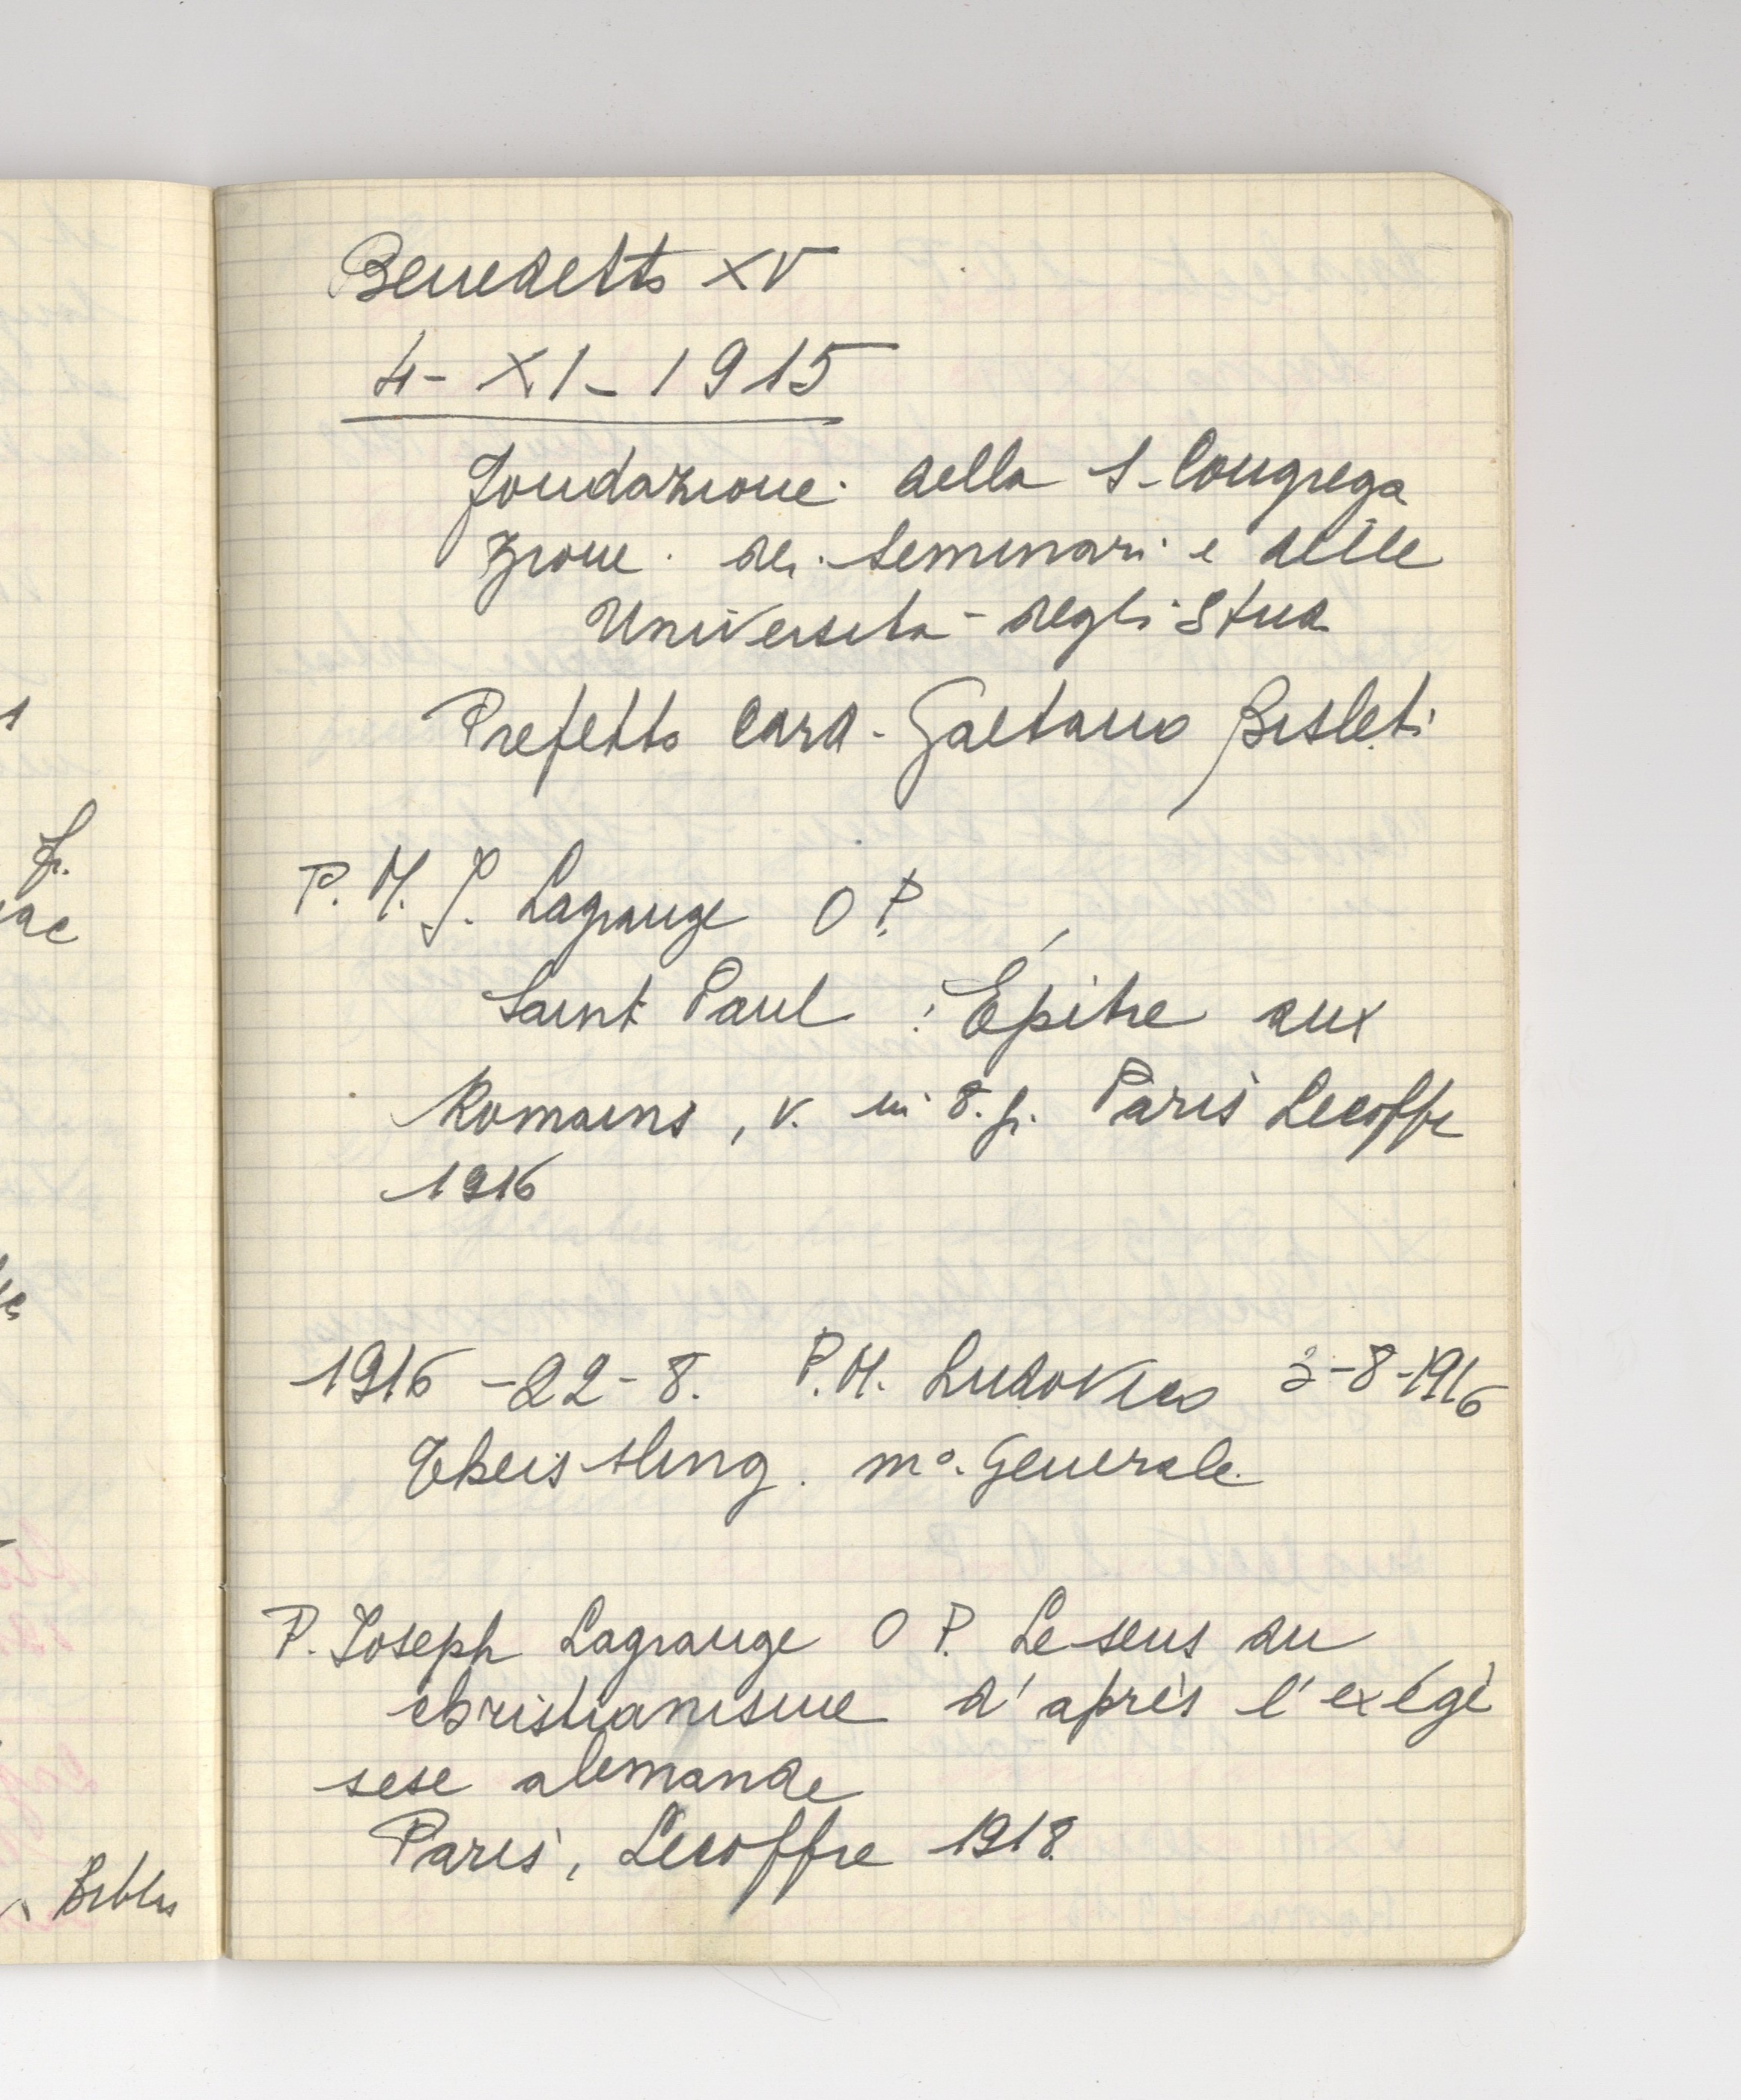 Benedetto XV
4- XI- 1915
fondazione della S. Congrega
zione dei Seminari e delle
Università degli Stud
Prefetto Card. Gaetano Bisleti
P. M. J. Lagrange O P.
Saint Paul : Épitre aux
Romains, v. in 8. gr. Paris Lecoffre
1916
1916 -22-8. P.M. Ludovico 3-8-1916
Theissling. mo. Generale
P. Joseph Lagrange O P. Le sens du
christianisme d'après l'exégè
sese alemande
Paris, Lecoffre 1918